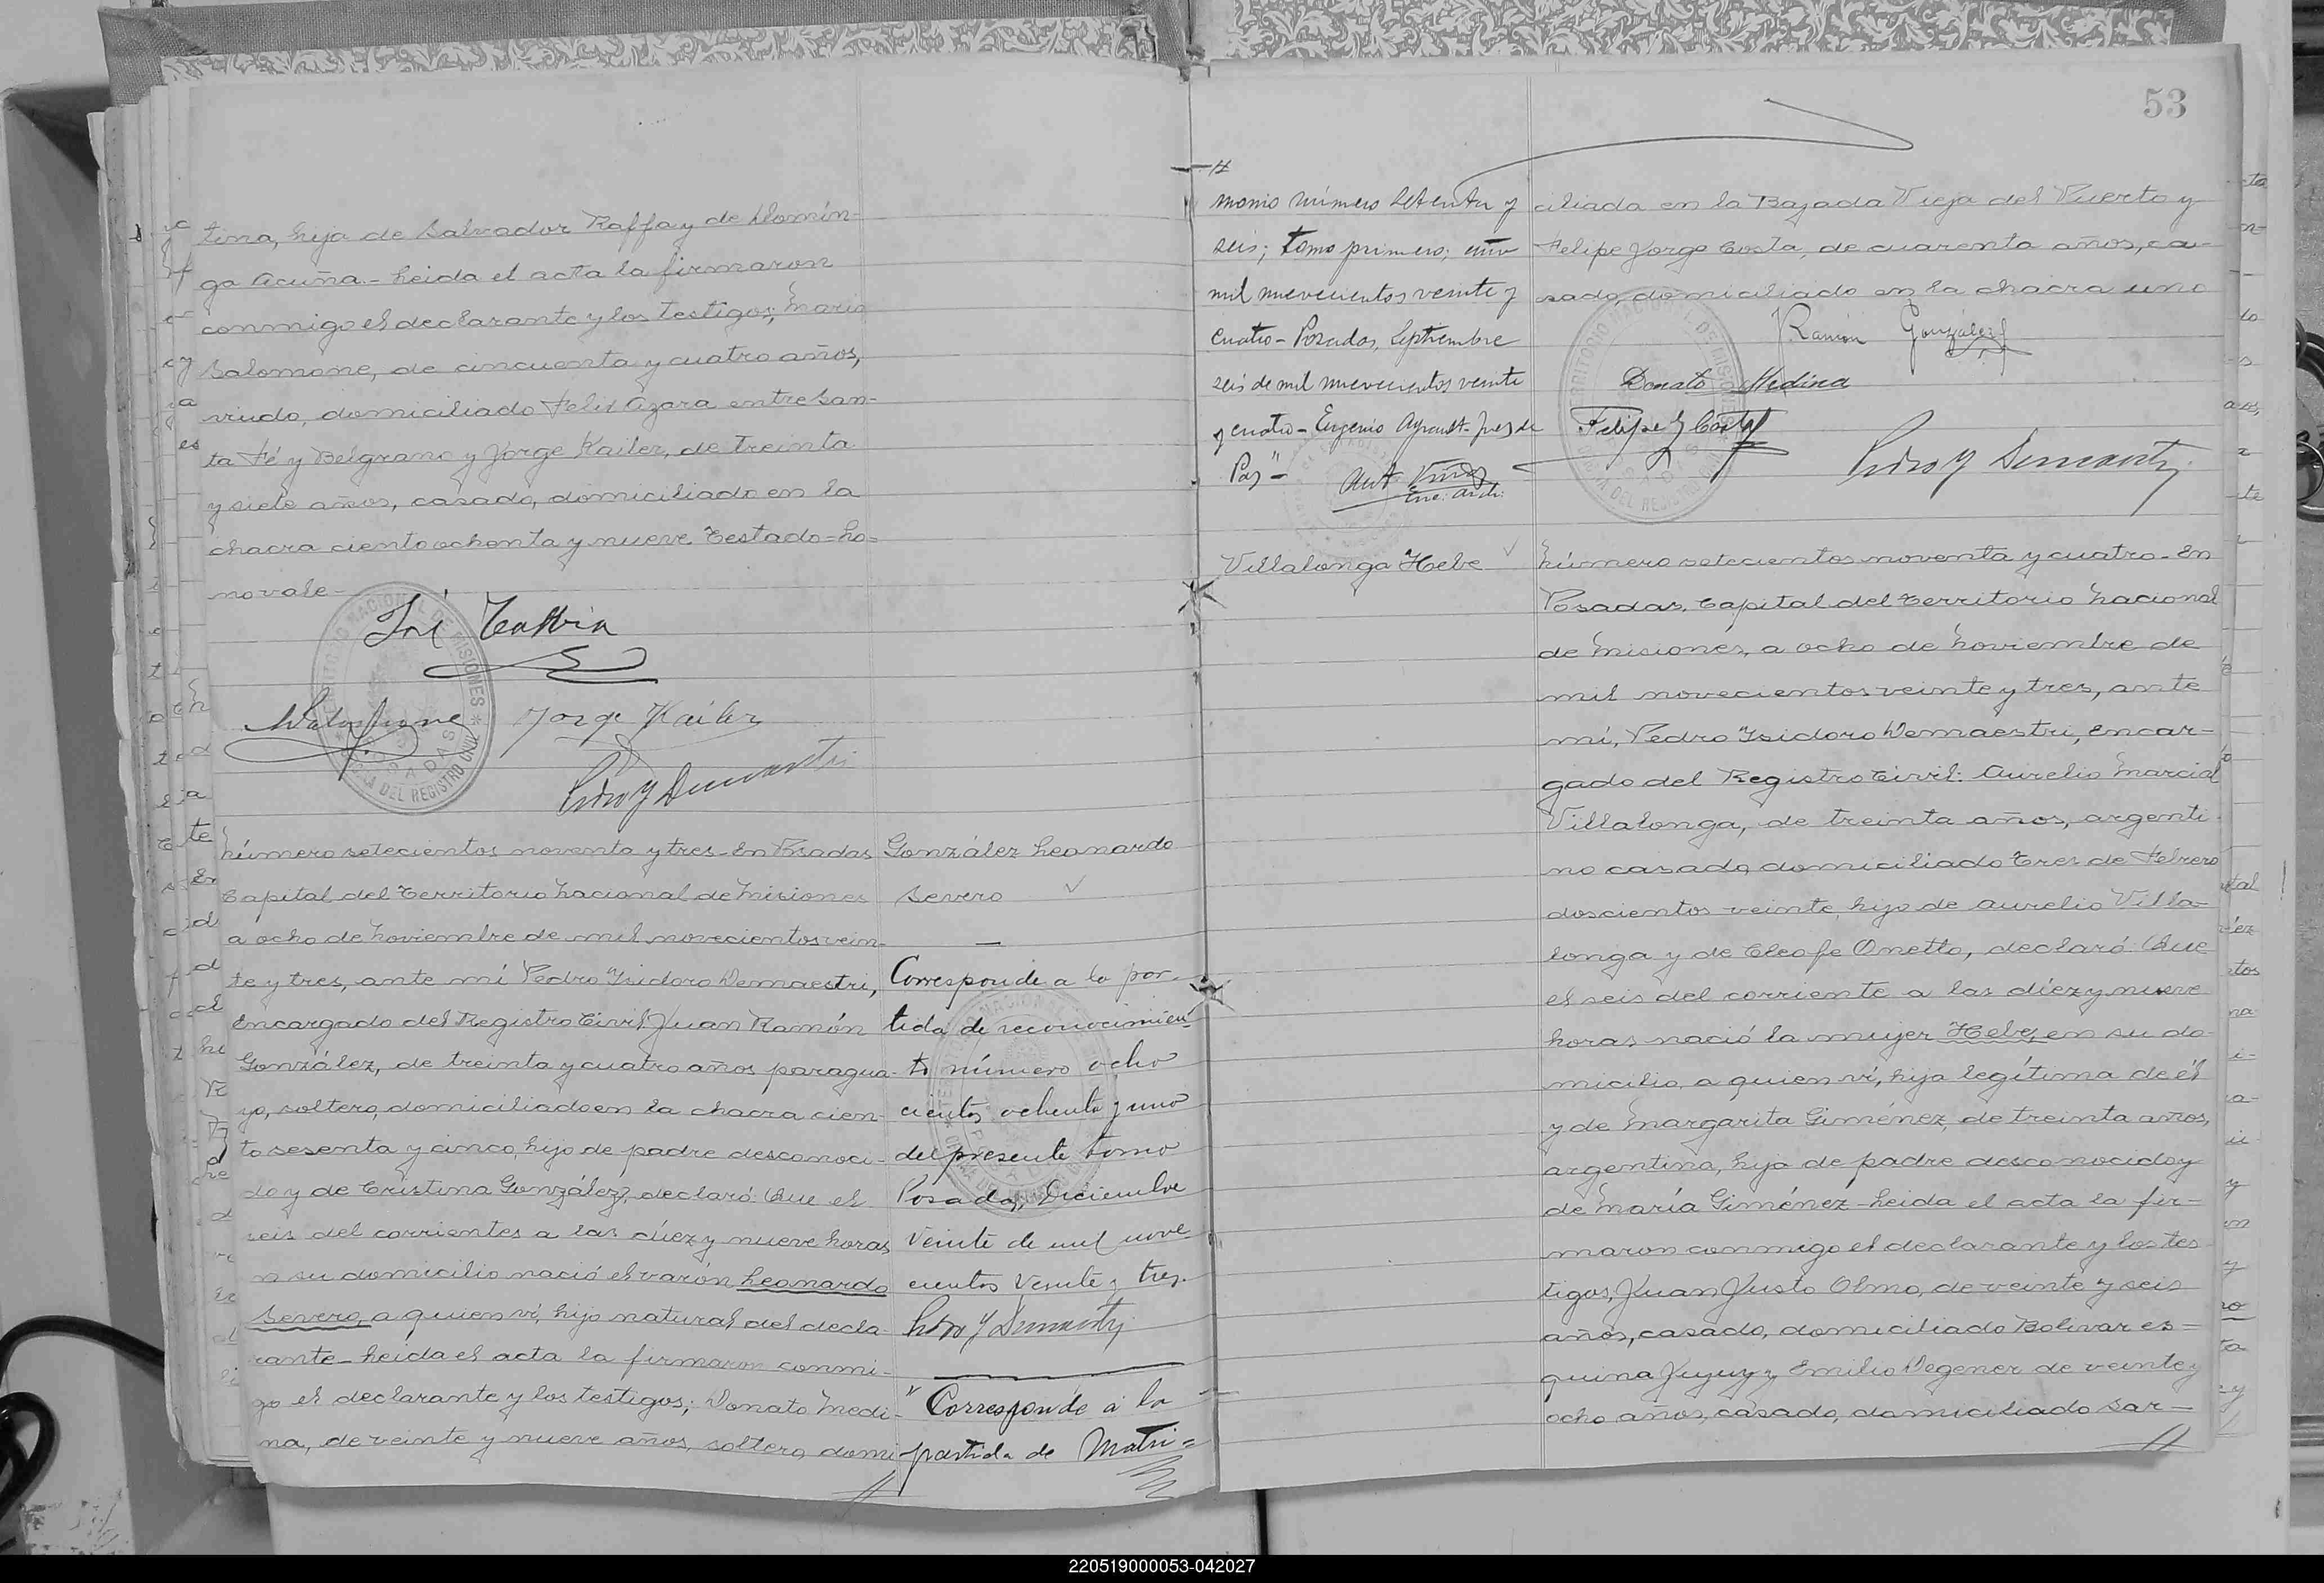 tina, hija de Salvador Raffa y de Domin-
ga Acuña.- Leida el acta la firmaron
conmigo el declarante y los testigos; Mario
Salomone, de cincuenta y cuatro años,
viudo, domiciliado Felix Azara entre San-
ta Fé y Belgrano y Jorge Kailer, de treinta
y siete años, casado, domiciliado en la
chacra ciento ochenta y nueve Testado=ho=
no vale-
José
MSalomone
Jorge Kailer
Pedro Y Demaestri
TERRITORIO NACIONAL DE MISIONES
OFICINA DEL REGISTRO CIVIL
POSADAS
Número setecientos noventa y tres- En Posadas
Capital del Territorio Nacional de Misiones
a ocho de Noviembre de mil novecientos vein-
te y tres, ante mí Pedro Ysidoro Demaestri,
Encargado del Registro Civil: Juan Ramón
González, de treinta y cuatro años paragua-
yo, soltero, domiciliado en la chacra cien-
to sesenta y cinco, hijo de padre desconoci-
do y de Cristina González, declaró: Que el
seis del corrientes a las díez y nueve horas
en su domicilio nació el varón Leonardo
Severo, a quien ví, hijo natural del decla-
rante- Leida el acta la firmaron conmi-
go el declarante y los testigos; Donato Medi-
na, de veinte y nueve años, soltero, domi-
González Leonardo
Severo
Corresponde a la par-
tida de reconocimien-
to número ocho
cientos ochenta y uno
del presente tomo
Posadas, Diciembre
veinte de mil nove
cientos veinte y tres.
Pedro Y Demaestri
"Corresponde a la
partida de Matri=
53
monio número setenta y
seis; tomo primero; año
mil novecientos veinte y
cuatro- Posadas, Septiembre
seis de mil novecientos veinte
y cuatro- Eugenio Ayrault- Juez de
Paz"-
Enc. Arch.
ciliada en la Bajada Vieja del Puerto y
Felipe Jorge Costa, de cuarenta años, ca-
sado, domiciliado en la chacra uno
J Ramón González
Donato Medina
Felipe J Costa
Pedro Y Demaestri
Villalonga Hebe
Número setecientos noventa y cuatro- En
Posadas, Capital del Territorio Nacional
de Misiones, a ocho de Noviembre de
mil novecientos veinte y tres, ante
mí, Pedro Ysidoro Demaestri, Encar-
gado del Registro Civil: Aurelio Marcial
Villalonga, de treinta años, argenti
no casado, domiciliado Tres de Febrero
doscientos veinte, hijo de Aurelio Villa-
longa y de Cleofe Onetto, declaró: Que
el seis del corriente a las díez y nueve
horas nació la mujer Hebe, en su do-
micilio, a quien ví, hija legítima de él
y de Margarita Giménez, de treinta años,
argentina, hija de padre desconocido y
de María Giménez- Leida el acta la fir-
maron conmigo el declarante y los tes
tigos, Juan Justo Olmo, de veinte y seis
años, casado, domiciliado Bolivar es-
quina Jujuy y Emilio Degener de veinte y
ocho años, casado, domiciliado Sar-
220519000053-042027